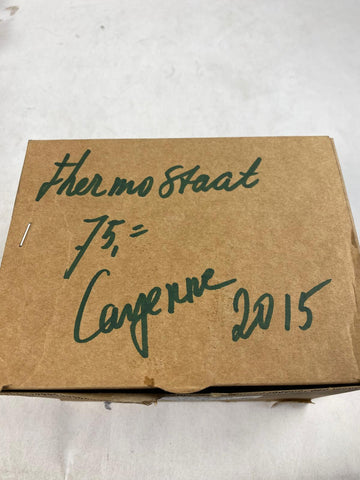 thermostaat
75,=
Cayenne 2015